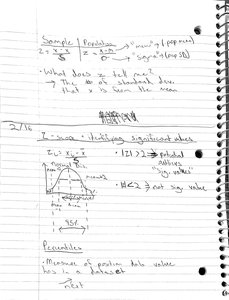 Sample | Population
z = x - x̄ / s | z = x - μ / σ → "mew" (pop mean)
→ "sigma" (pop SD)
• What does z tell me?
→ The # of standard dev.
that x is from the mean
2/16
Z-score - identifying significant values
• |z| > 2 → potential
outliers
"sig. values"
• < 2 → not sig. value
95%
Percentiles
• Measure of position tells value
has in a dataset
→ next